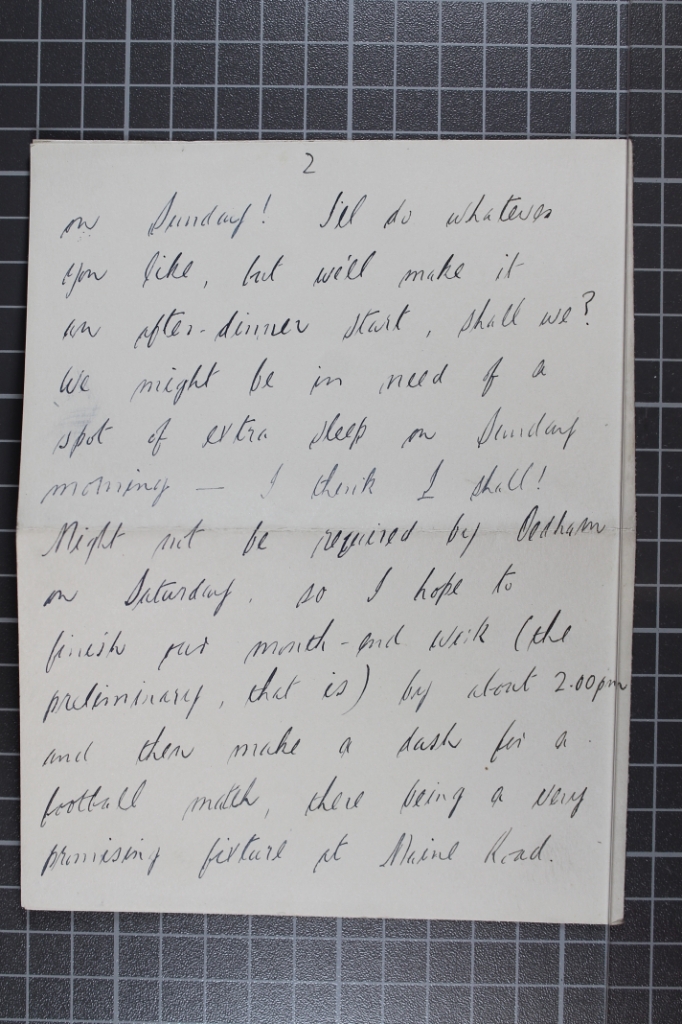 2
on Sunday! I'll do whatever
you like, but we'll make it
an after-dinner start, shall we?
We might be in need of a
spot of extra sleep on Sunday
morning — I think I shall!
Might not be required by Oldham
on Saturday, so I hope to
finish our month-end work (the
preliminary, that is) by about 2.00pm
and then make a dash for a
football match, there being a very
promising fixture at Maine Road.